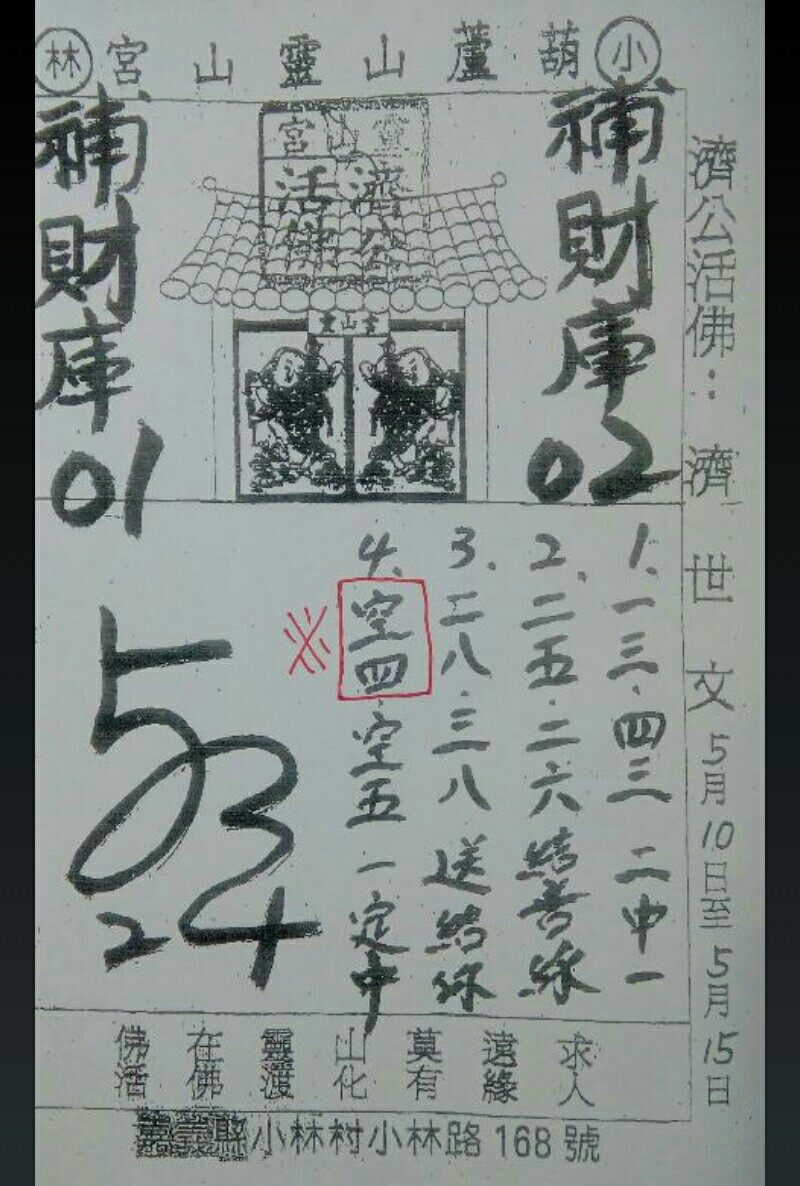 小 葫蘆山靈山宮 林
濟公活佛: 濟世文 5月10日至5月15日
補財庫 02
靈山宮
濟公
活佛
補財庫 01
1. 一三.四三 二中一
2. 二五.二六 結善緣
3. 二八.三八 送結緣
4. 空四.空五 一定中
※
5 3
2 4
求人
遠緣
莫有
山化
靈渡
在佛
佛活
嘉義縣小林村小林路168號